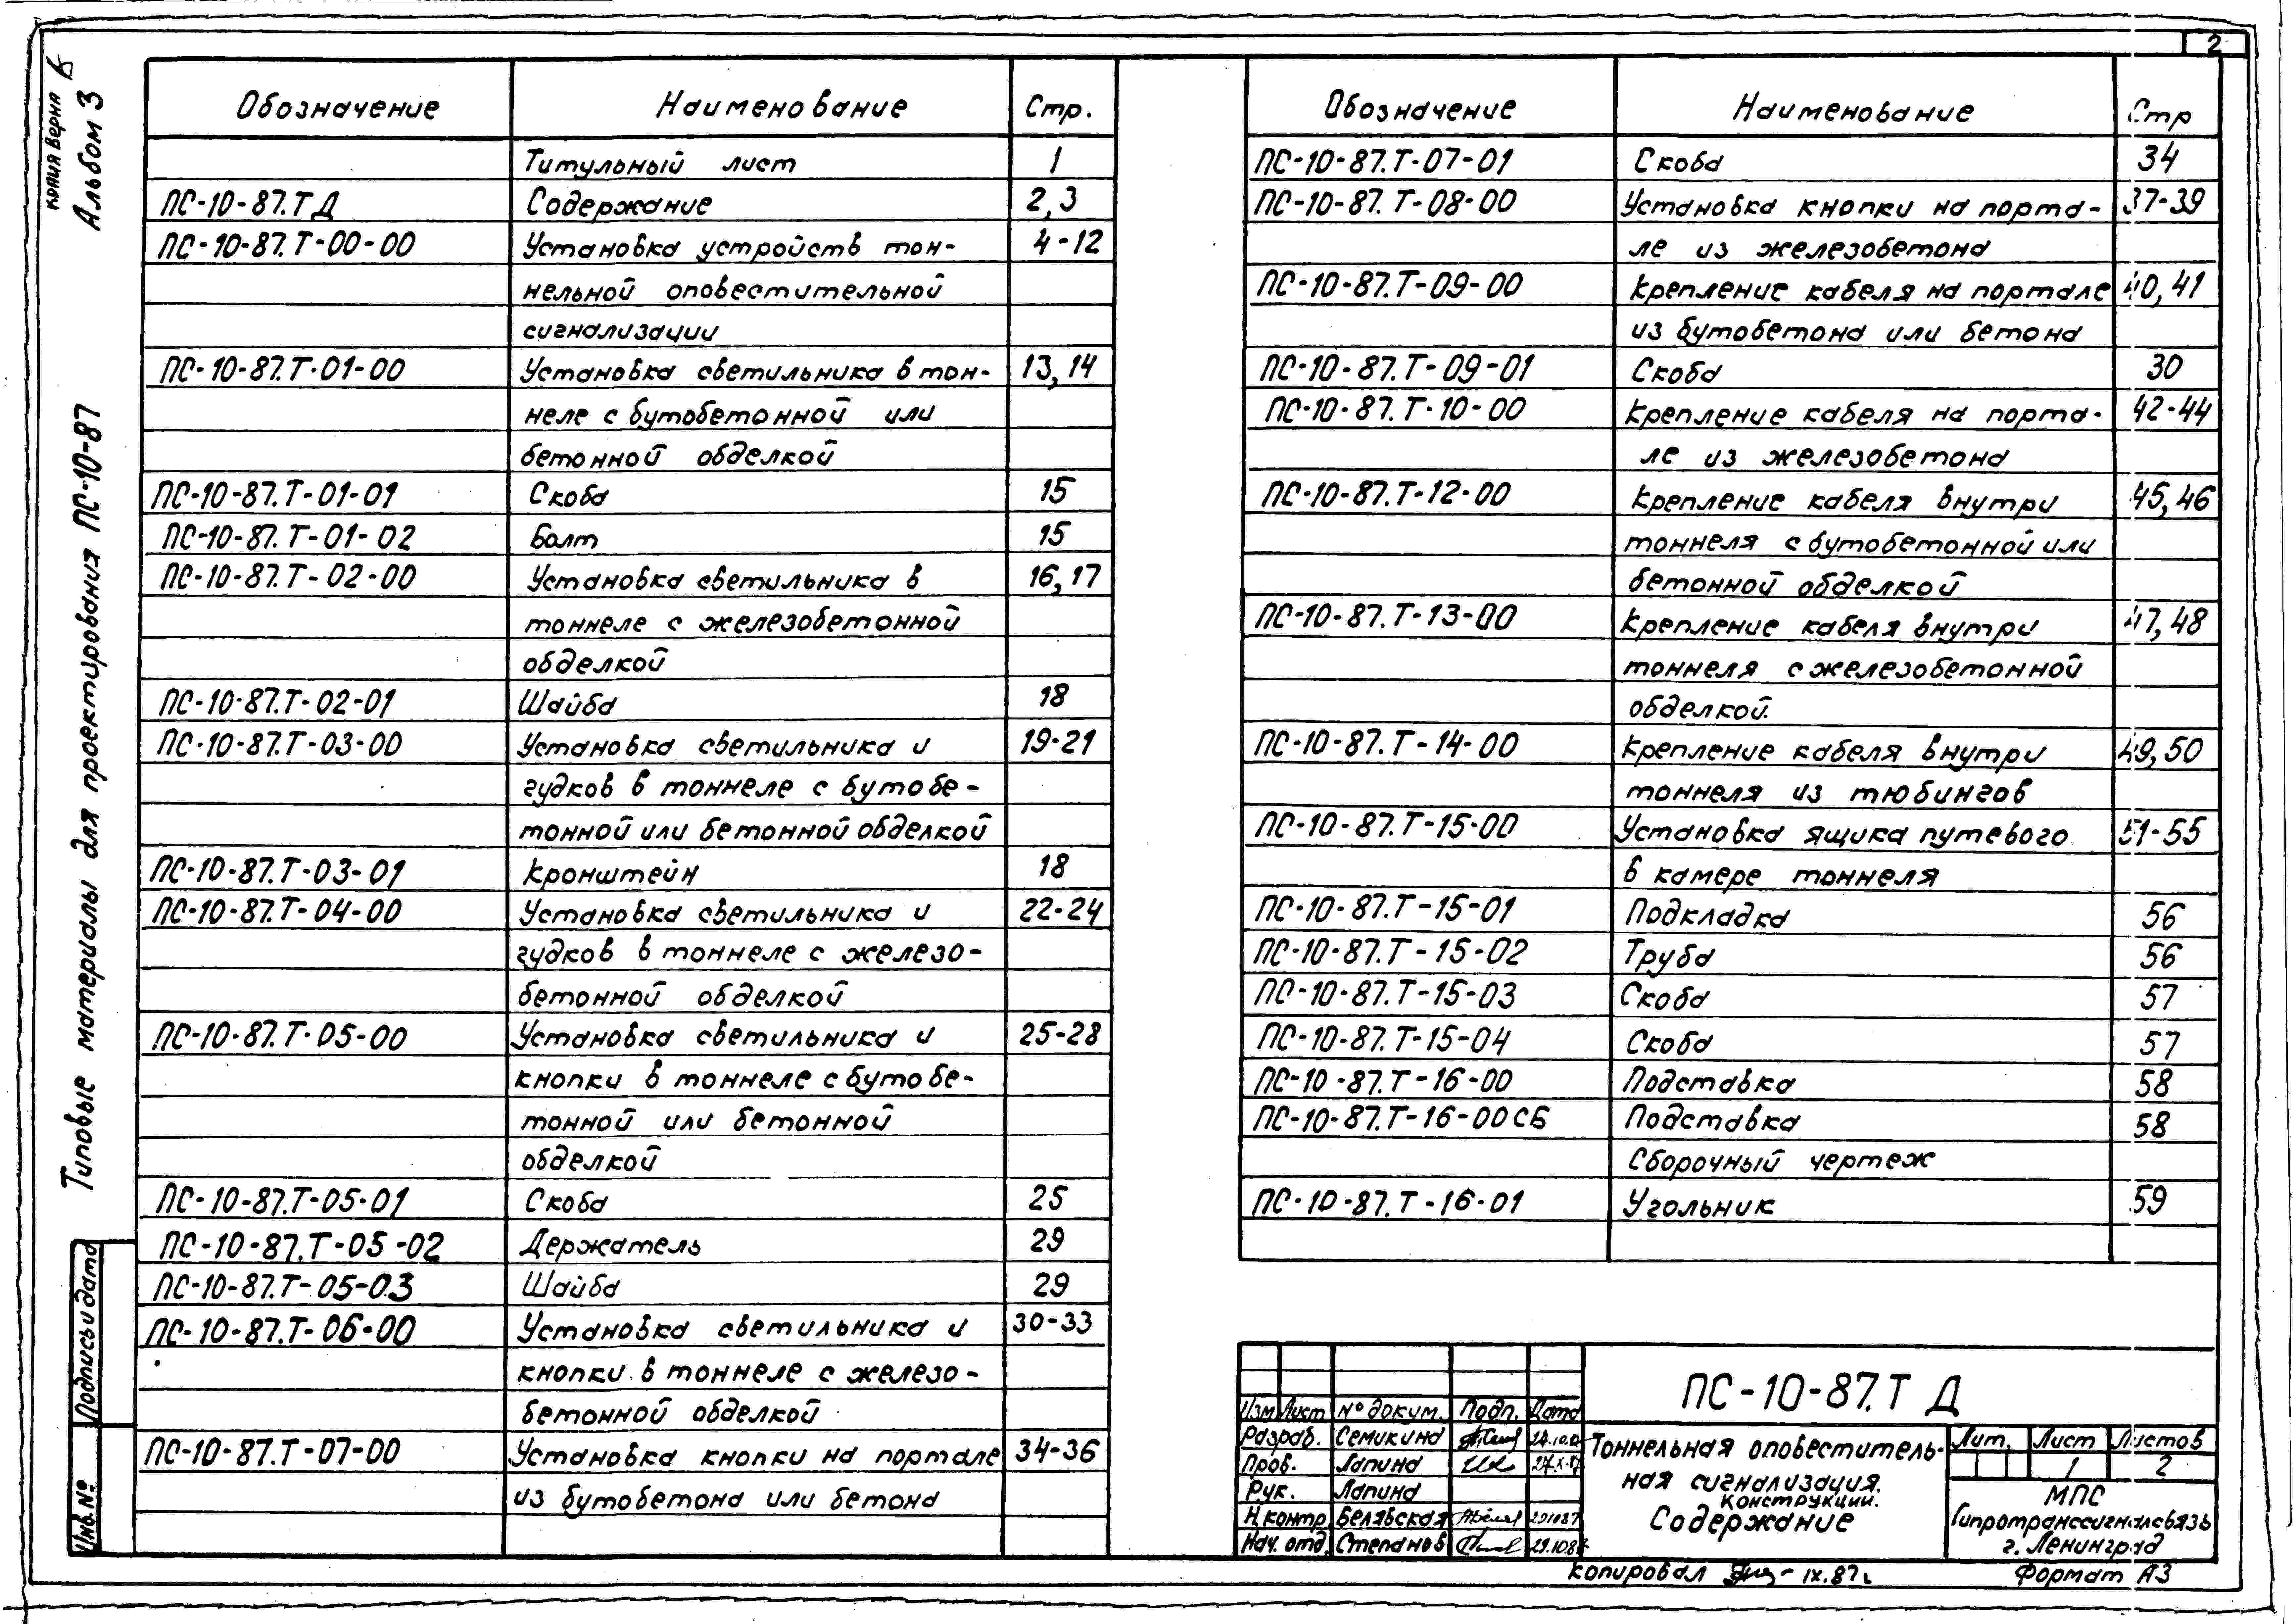 2
Копия верна
Альбом 3
Типовые материалы для проектирования ПС-10-87
Подпись и дата
Инв. №
Обозначение Наименование Стр.
Титульный лист 1
ПС-10-87.Т Д Содержание 2,3
ПС-10-87.Т-00-00 Установка устройств тон- 4-12
нельной оповестительной
сигнализации
ПС-10-87.Т-01-00 Установка светильника в тон- 13,14
неле с бутобетонной или
бетонной обделкой
ПС-10-87.Т-01-01 Скоба 15
ПС-10-87.Т-01-02 Болт 15
ПС-10-87.Т-02-00 Установка светильника в 16,17
тоннеле с железобетонной
обделкой
ПС-10-87.Т-02-01 Шайба 18
ПС-10-87.Т-03-00 Установка светильника и 19-21
гудков в тоннеле с бутобе-
тонной или бетонной обделкой
ПС-10-87.Т-03-01 Кронштейн 18
ПС-10-87.Т-04-00 Установка светильника и 22-24
гудков в тоннеле с железо-
бетонной обделкой
ПС-10-87.Т-05-00 Установка светильника и 25-28
кнопки в тоннеле с бутобе-
тонной или бетонной
обделкой
ПС-10-87.Т-05-01 Скоба 25
ПС-10-87.Т-05-02 Держатель 29
ПС-10-87.Т-05-03 Шайба 29
ПС-10-87.Т-06-00 Установка светильника и 30-33
кнопки в тоннеле с железо-
бетонной обделкой
ПС-10-87.Т-07-00 Установка кнопки на портале 34-36
из бутобетона или бетона
Обозначение Наименование Стр
ПС-10-87.Т-07-01 Скоба 34
ПС-10-87.Т-08-00 Установка кнопки на порта- 37-39
ле из железобетона
ПС-10-87.Т-09-00 Крепление кабеля на портале 40,41
из бутобетона или бетона
ПС-10-87.Т-09-01 Скоба 30
ПС-10-87.Т-10-00 Крепление кабеля на порта- 42-44
ле из железобетона
ПС-10-87.Т-12-00 Крепление кабеля внутри 45,46
тоннеля с бутобетонной или
бетонной обделкой
ПС-10-87.Т-13-00 Крепление кабеля внутри 47,48
тоннеля с железобетонной
обделкой.
ПС-10-87.Т-14-00 Крепление кабеля внутри 49,50
тоннеля из тюбингов
ПС-10-87.Т-15-00 Установка ящика путевого 51-55
в камере тоннеля
ПС-10-87.Т-15-01 Подкладка 56
ПС-10-87.Т-15-02 Труба 56
ПС-10-87.Т-15-03 Скоба 57
ПС-10-87.Т-15-04 Скоба 57
ПС-10-87.Т-16-00 Подставка 58
ПС-10-87.Т-16-00СБ Подставка 58
Сборочный чертеж
ПС-10-87.Т-16-01 Угольник 59
ПС-10-87.Т Д
Изм Лист № докум. Подп. Дата
Разраб. Семикина
Пров. Лапина
Рук. Лапина
Н.контр Белявская 291087
Нач. отд. Степанов 29.10.87
Тоннельная оповеститель-
ная сигнализация.
Конструкции.
Содержание
Лит. Лист Листов
1 2
МПС
Гипротранссигналсвязь
г. Ленинград
Копировал IX.87г
Формат А3